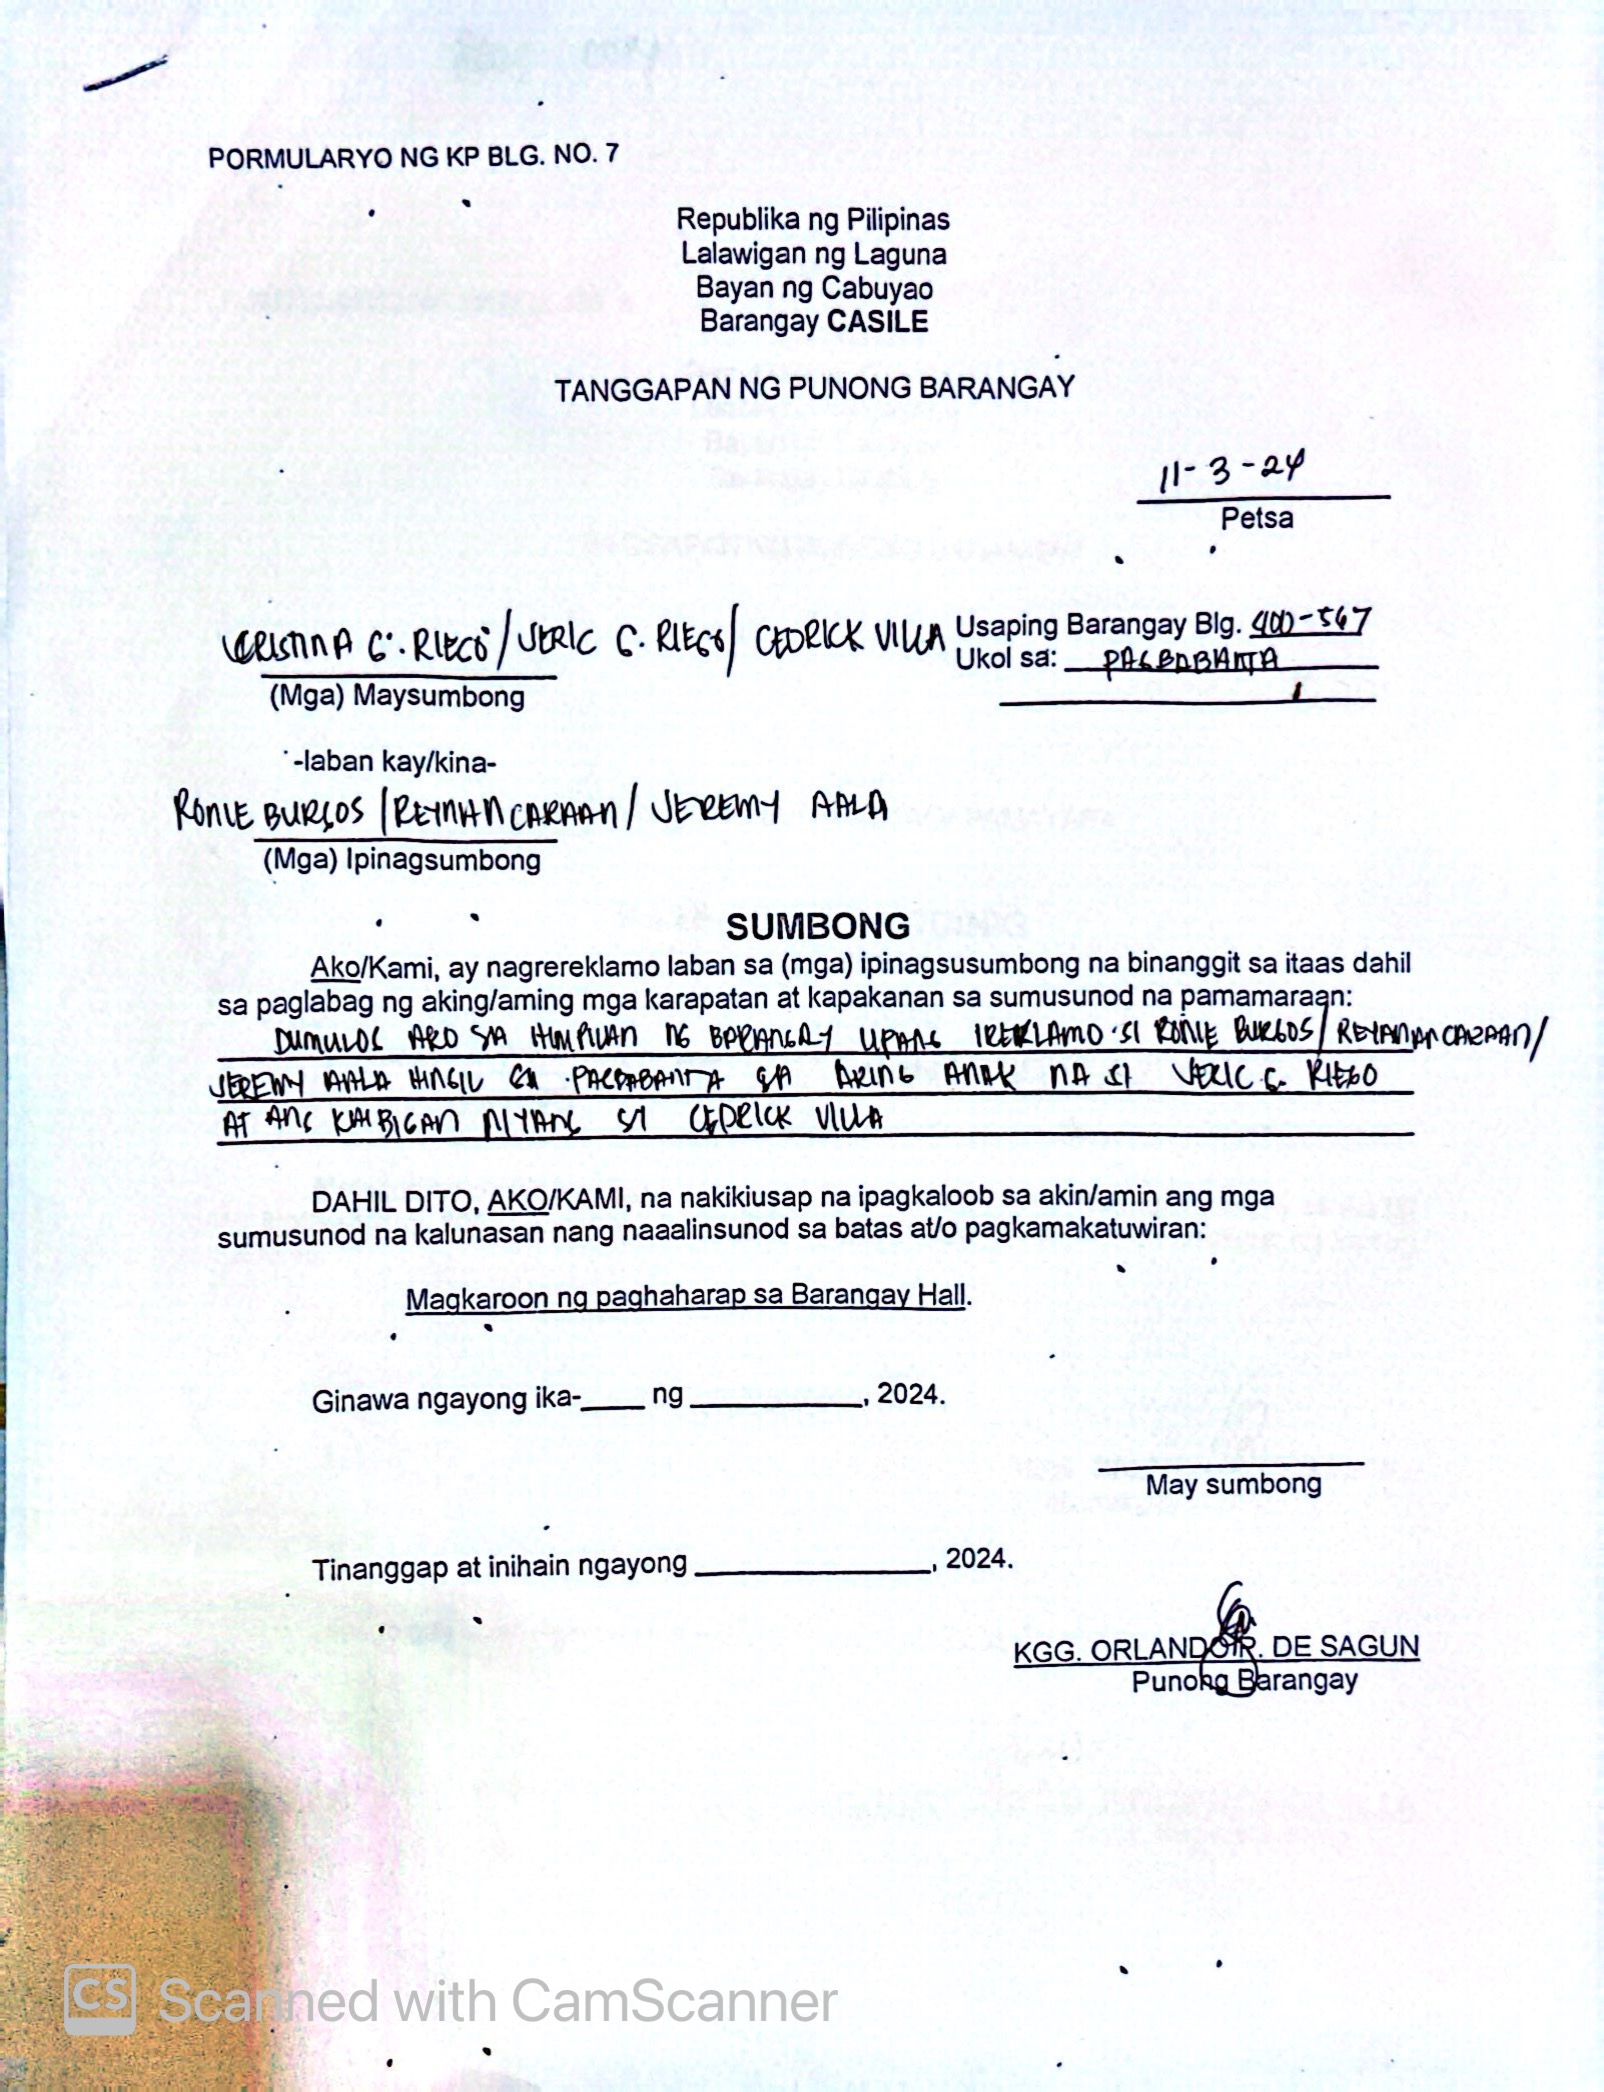 PORMULARYO NG KP BLG. NO. 7
Republika ng Pilipinas
Lalawigan ng Laguna
Bayan ng Cabuyao
Barangay CASILE
TANGGAPAN NG PUNONG BARANGAY
11-3-24
Petsa
CRISTINA G. RIEGO / JERIC G. RIEGO / CEDRICK VILLA Usaping Barangay Blg. 400-567
Ukol sa: PAGBABANTA
(Mga) Maysumbong
-laban kay/kina-
RONIE BURGOS / REYMAN CARAAN / JEREMY AALA
(Mga) Ipinagsumbong
SUMBONG
Ako/Kami, ay nagrereklamo laban sa (mga) ipinagsusumbong na binanggit sa itaas dahil
sa paglabag ng aking/aming mga karapatan at kapakanan sa sumusunod na pamamaraan:
DUMULOG AKO SA HIMPILAN NG BARANGAY UPANG IREKLAMO SI RONIE BURGOS / REYMAN CARAAN /
JEREMY AALA HINGIL SA PAGBABANTA SA AKING ANAK NA SI JERIC G. RIEGO
AT ANG KAIBIGAN NIYANG SI CEDRICK VILLA
DAHIL DITO, AKO/KAMI, na nakikiusap na ipagkaloob sa akin/amin ang mga
sumusunod na kalunasan nang naaalinsunod sa batas at/o pagkamakatuwiran:
Magkaroon ng paghaharap sa Barangay Hall.
Ginawa ngayong ika-____ ng ____________, 2024.
May sumbong
Tinanggap at inihain ngayong ________________, 2024.
KGG. ORLANDO R. DE SAGUN
Punong Barangay
CS Scanned with CamScanner